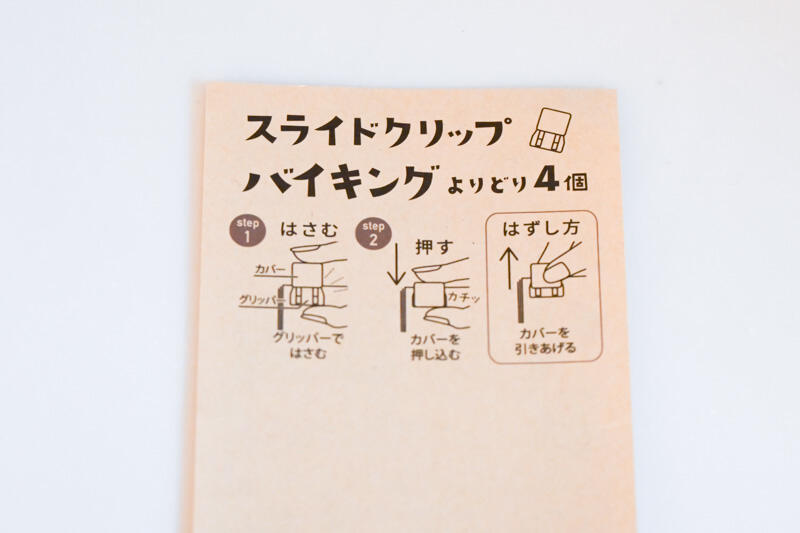 スライドクリップ
バイキング よりどり4個
step 1 はさむ
カバー
グリッパー
グリッパーで
はさむ
step 2 押す
カチッ
カバーを
押し込む
はずし方
カバーを
引きあげる